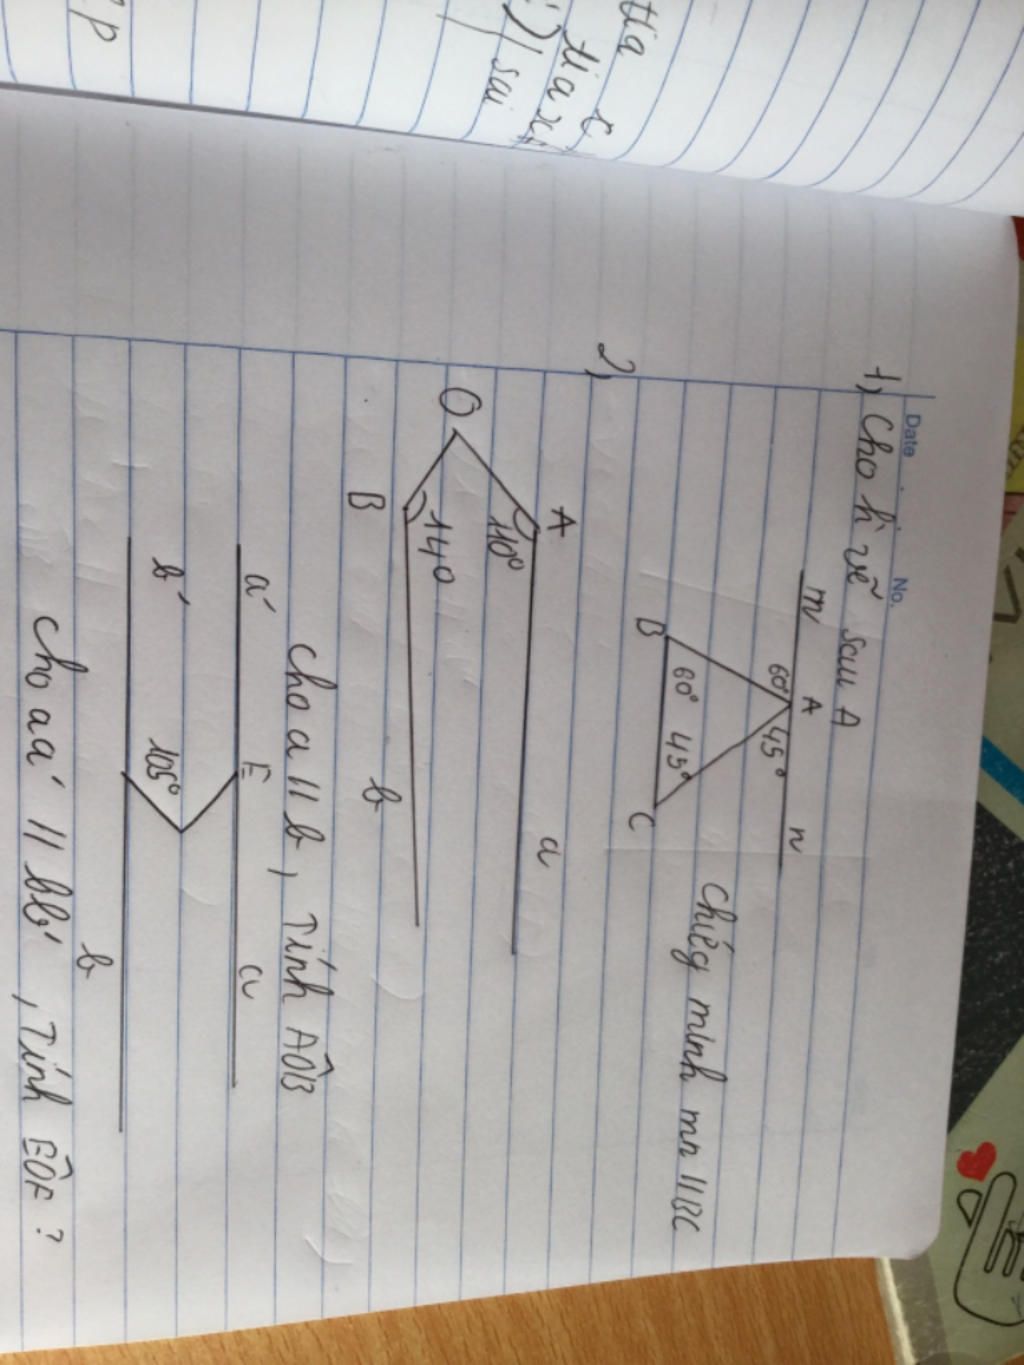 Date No.
1, Cho h vẽ sau A
m A n
60° 45°
60° 45°
B C
Chứg minh mn // BC
2,
A a
110°
O
140
B b
Cho a // b, Tính AÔB
a' E a
105°
b' b
Cho aa' // bb', Tính EÔF ?
sai